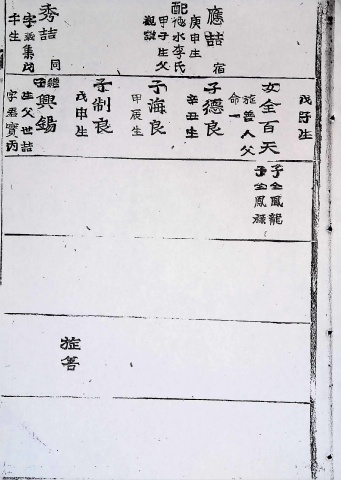 戊子生
應喆
宿
庚申生
配
衪水李氏
甲子生父
觀謨
秀喆
同
字义集戊
午生
女全百天
旌善人父
命一
子德良
辛丑生
子海良
甲辰生
子制良
戊申生
繼子興錫
生父世喆
字君寶丙
子全鳳龍
子全鳳祿
旌善